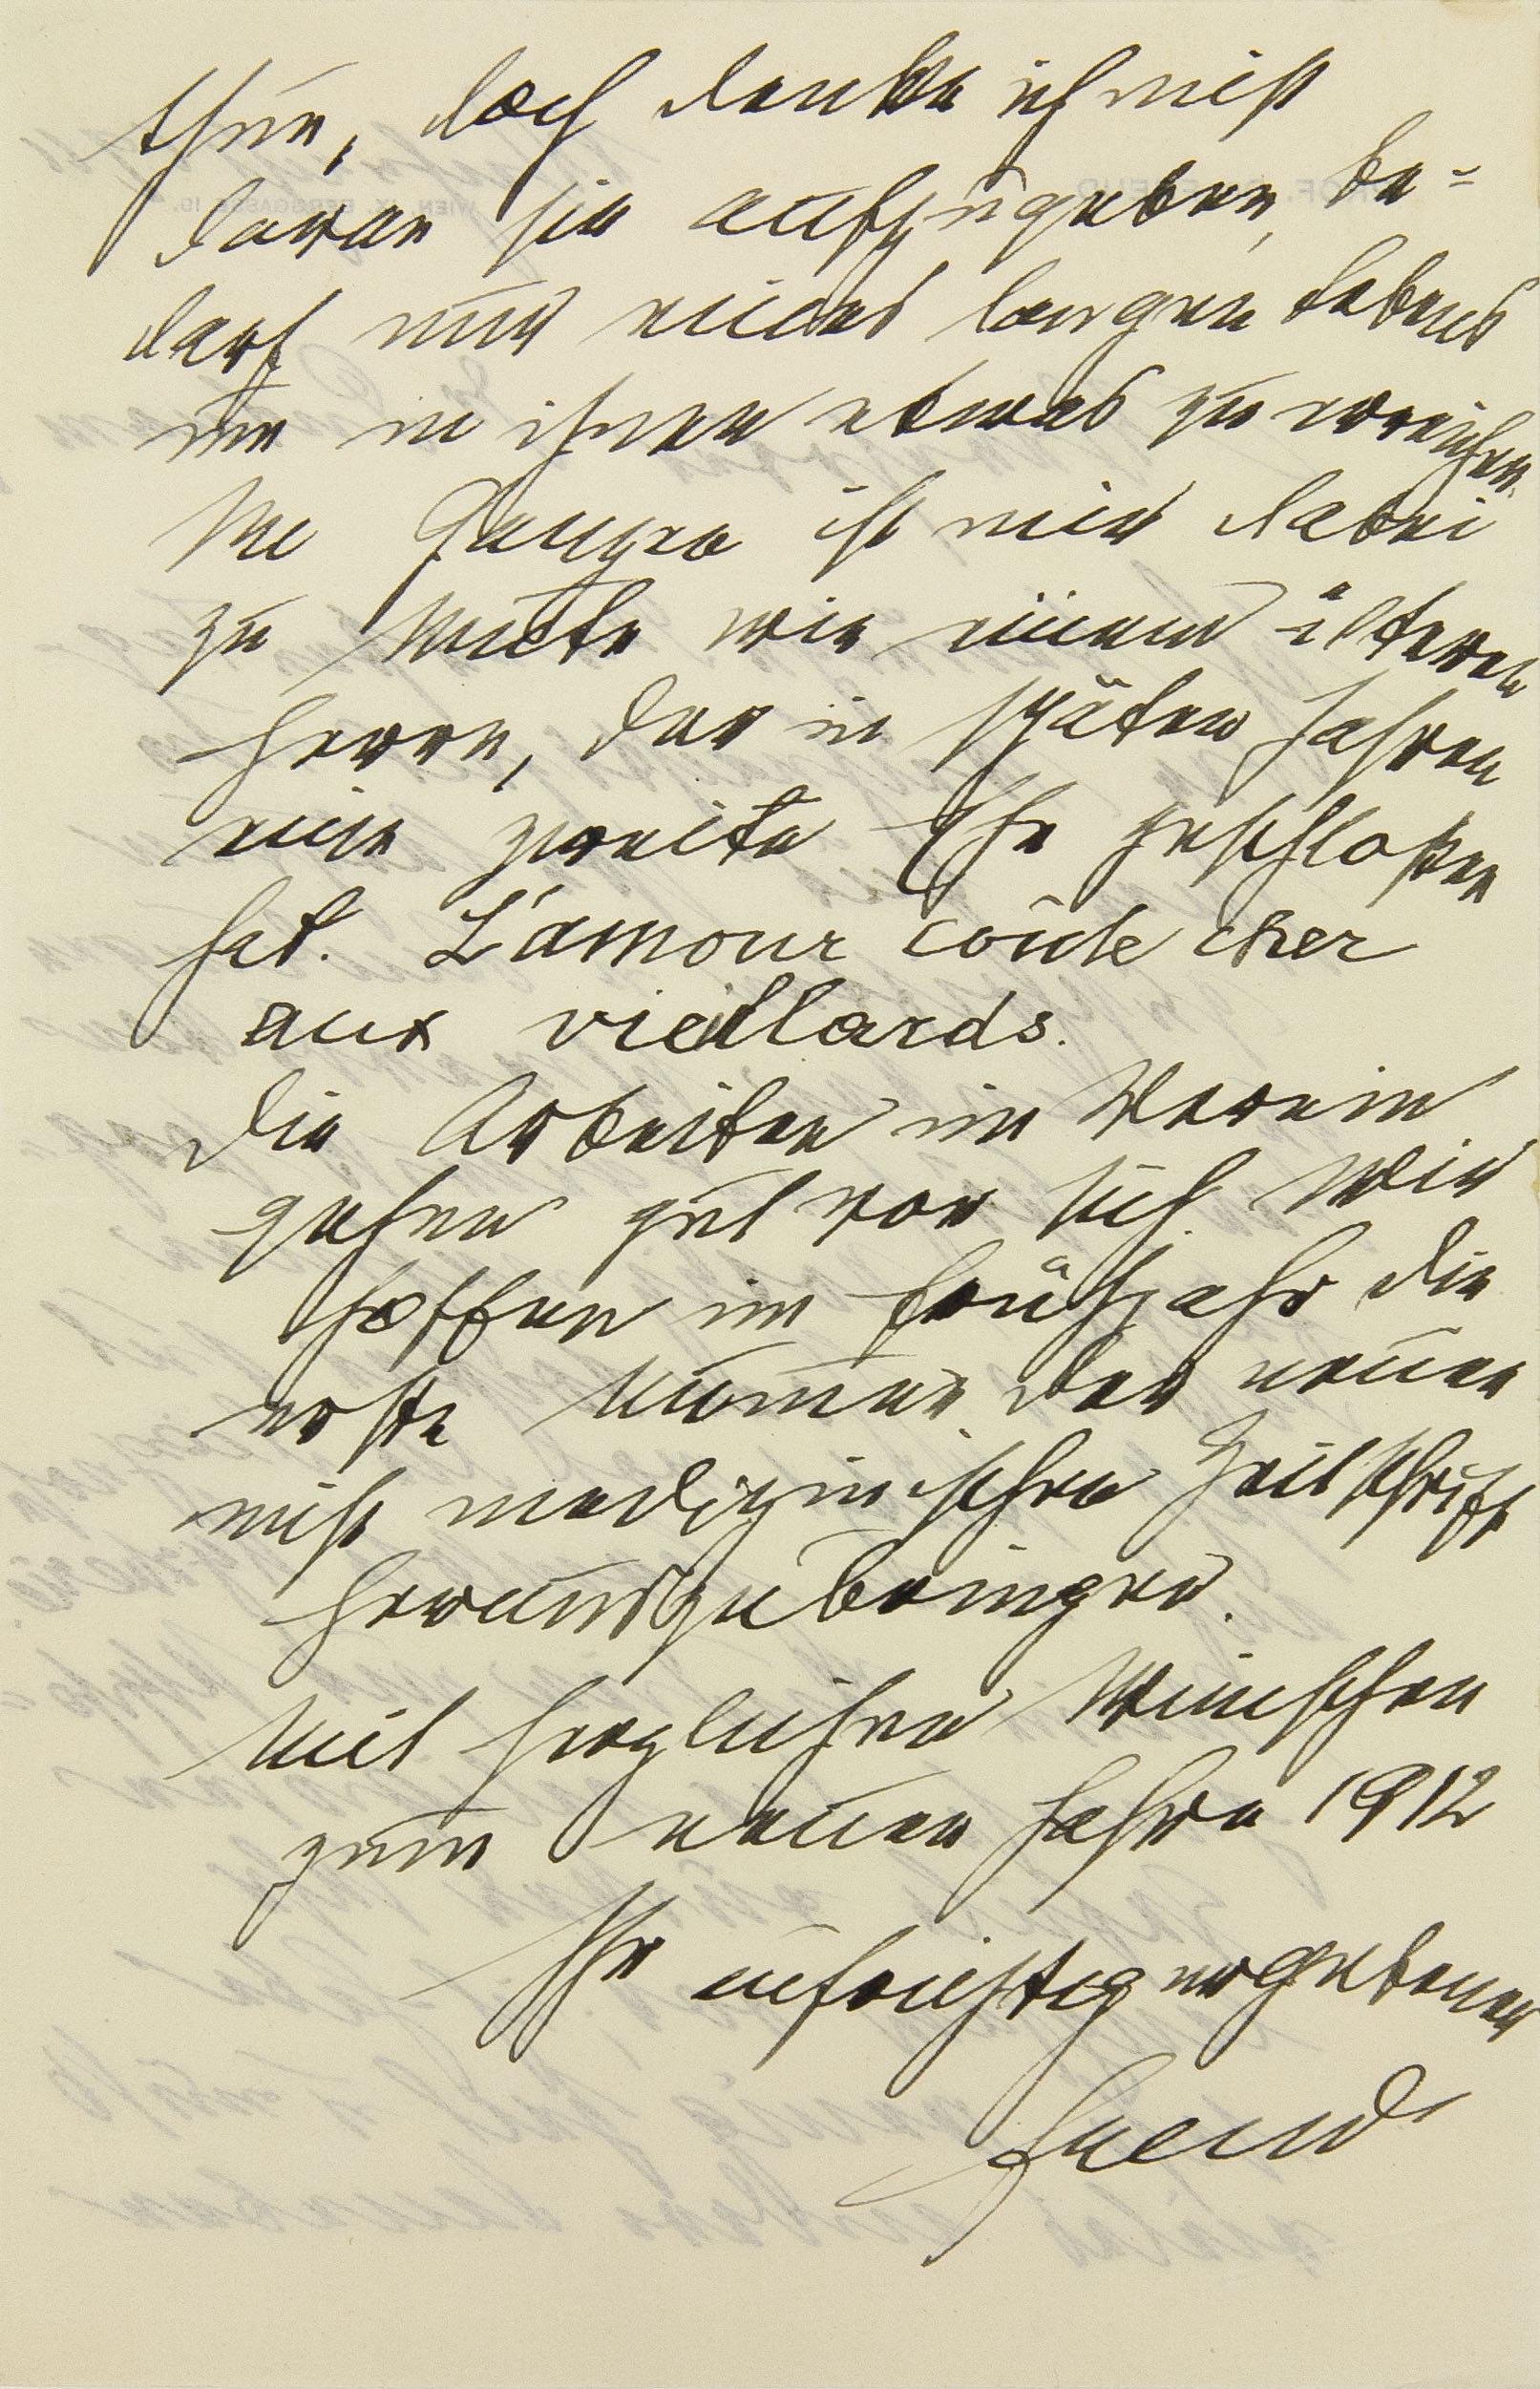 thun, doch denke ich nicht
daran sie aufzugeben, be-
darf nur eines langen Lebens
um in ihnen etwas zu erreichen.
Im Ganzen ist mir dabei
zu Mute wie einem älteren
Herrn, der in späten Jahren
eine zweite Ehe geschlossen
hat. L'amour coûte cher
aux vieillards.
Die Arbeiten im Verein
gehen gut vor sich. Wir
hoffen im Frühjahr die
erste Nummer der neuen
nicht medizinischen Zeitschrift
herauszubringen.
Mit herzlichen Wünschen
zum neuen Jahre 1912
Ihr aufrichtig ergebener
Freud